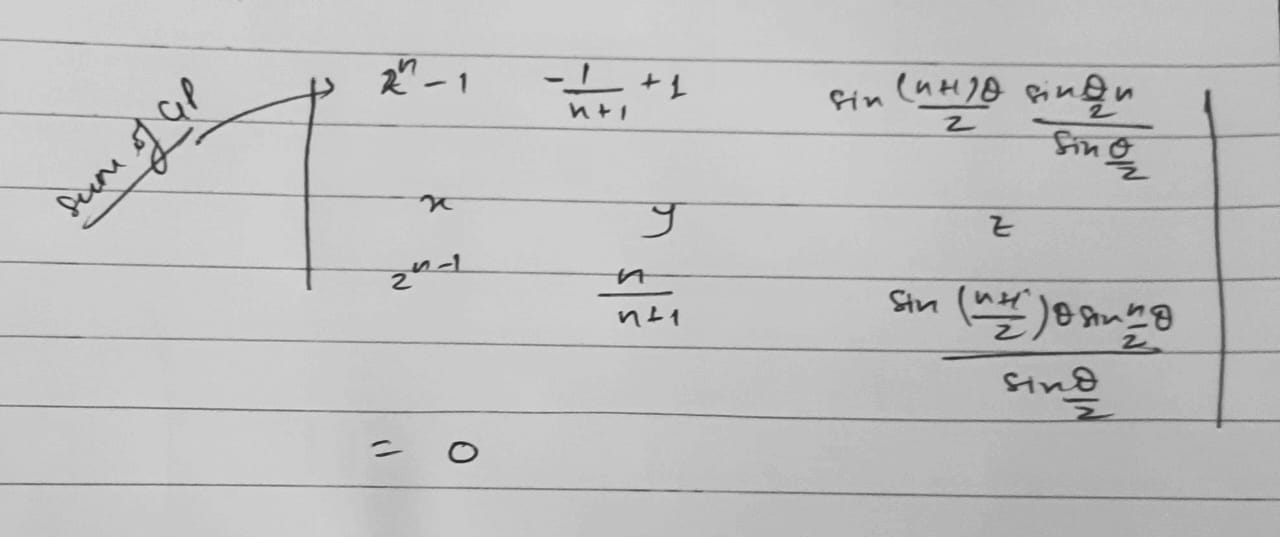 sum of GP → | 2^n - 1   -1/(n+1) + 1   sin (n+1)θ/2 sin θ/2 n / sin θ/2 |
| x   y   z |
| 2^{n-1}   n/(n+1)   sin ((n+1)/2)θ sin n/2 θ / sin θ/2 |
= 0